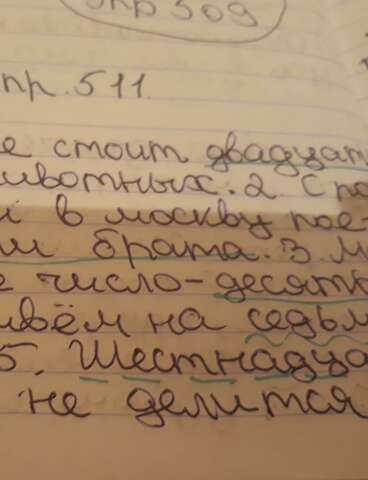 пр 509
пр. 511
е стоит двадцат
ивотных. 2. С по
й в москву пое-
ии брата. 3. М
е число-десять
ивём на седьм
5. Шестнадца
не делится